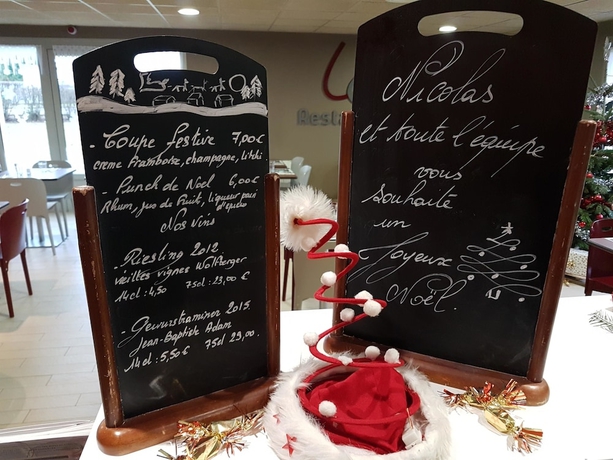 - Coupe festive 7,00€
creme Framboise, champagne, litchi
- Punch de Noel 6,00€
Rhum, jus de fruit, liqueur pain
d'epices
Nos vins
- Riesling 2012
vieilles vignes Wolfberger
14cl : 4,50 75cl 23,00 €
- Gewurstraminer 2015.
Jean-Baptiste Adam
14cl : 5,50€ 75cl 29,00.
Nicolas
et toute l'équipe
vous
souhaite
un
Joyeux
Noël.
Resta